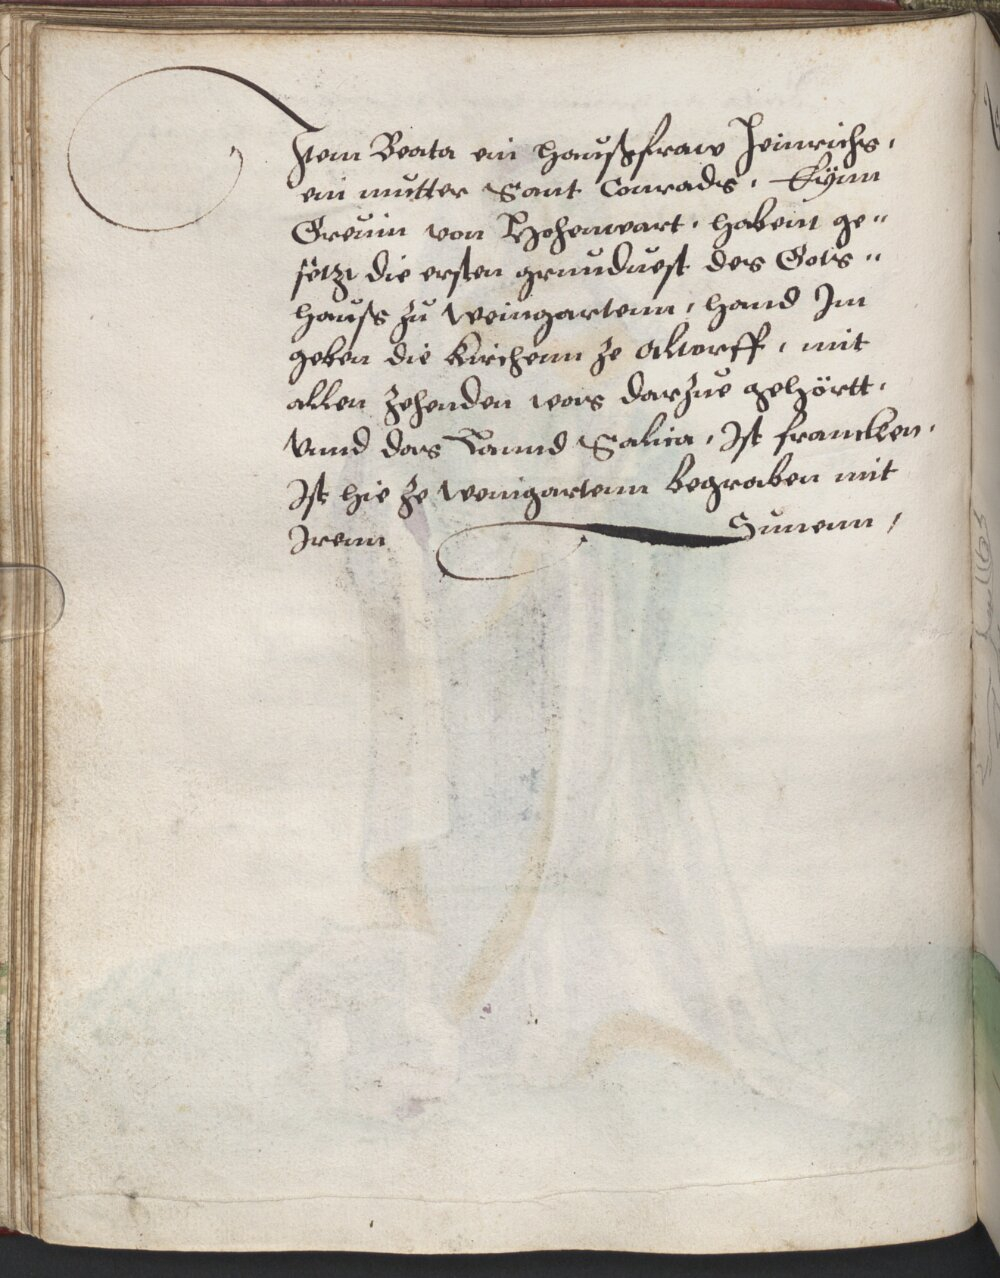 Item Beata ein haußfraw Heinrichs,
ein mutter Sant Conrads, Eynn
Grevin von Hohenwart, habenn ge„
setzt die ersten grundvest des Gots„
hauss zu weingartenn, hand Im
geben die kirchenn ze altorff, mit
allen zehenden was darzue gehörtt,
Vnnd das Lannd Salica, Ist francken,
Ist hie ze weingartenn begraben mit
Irenn Sunenn,